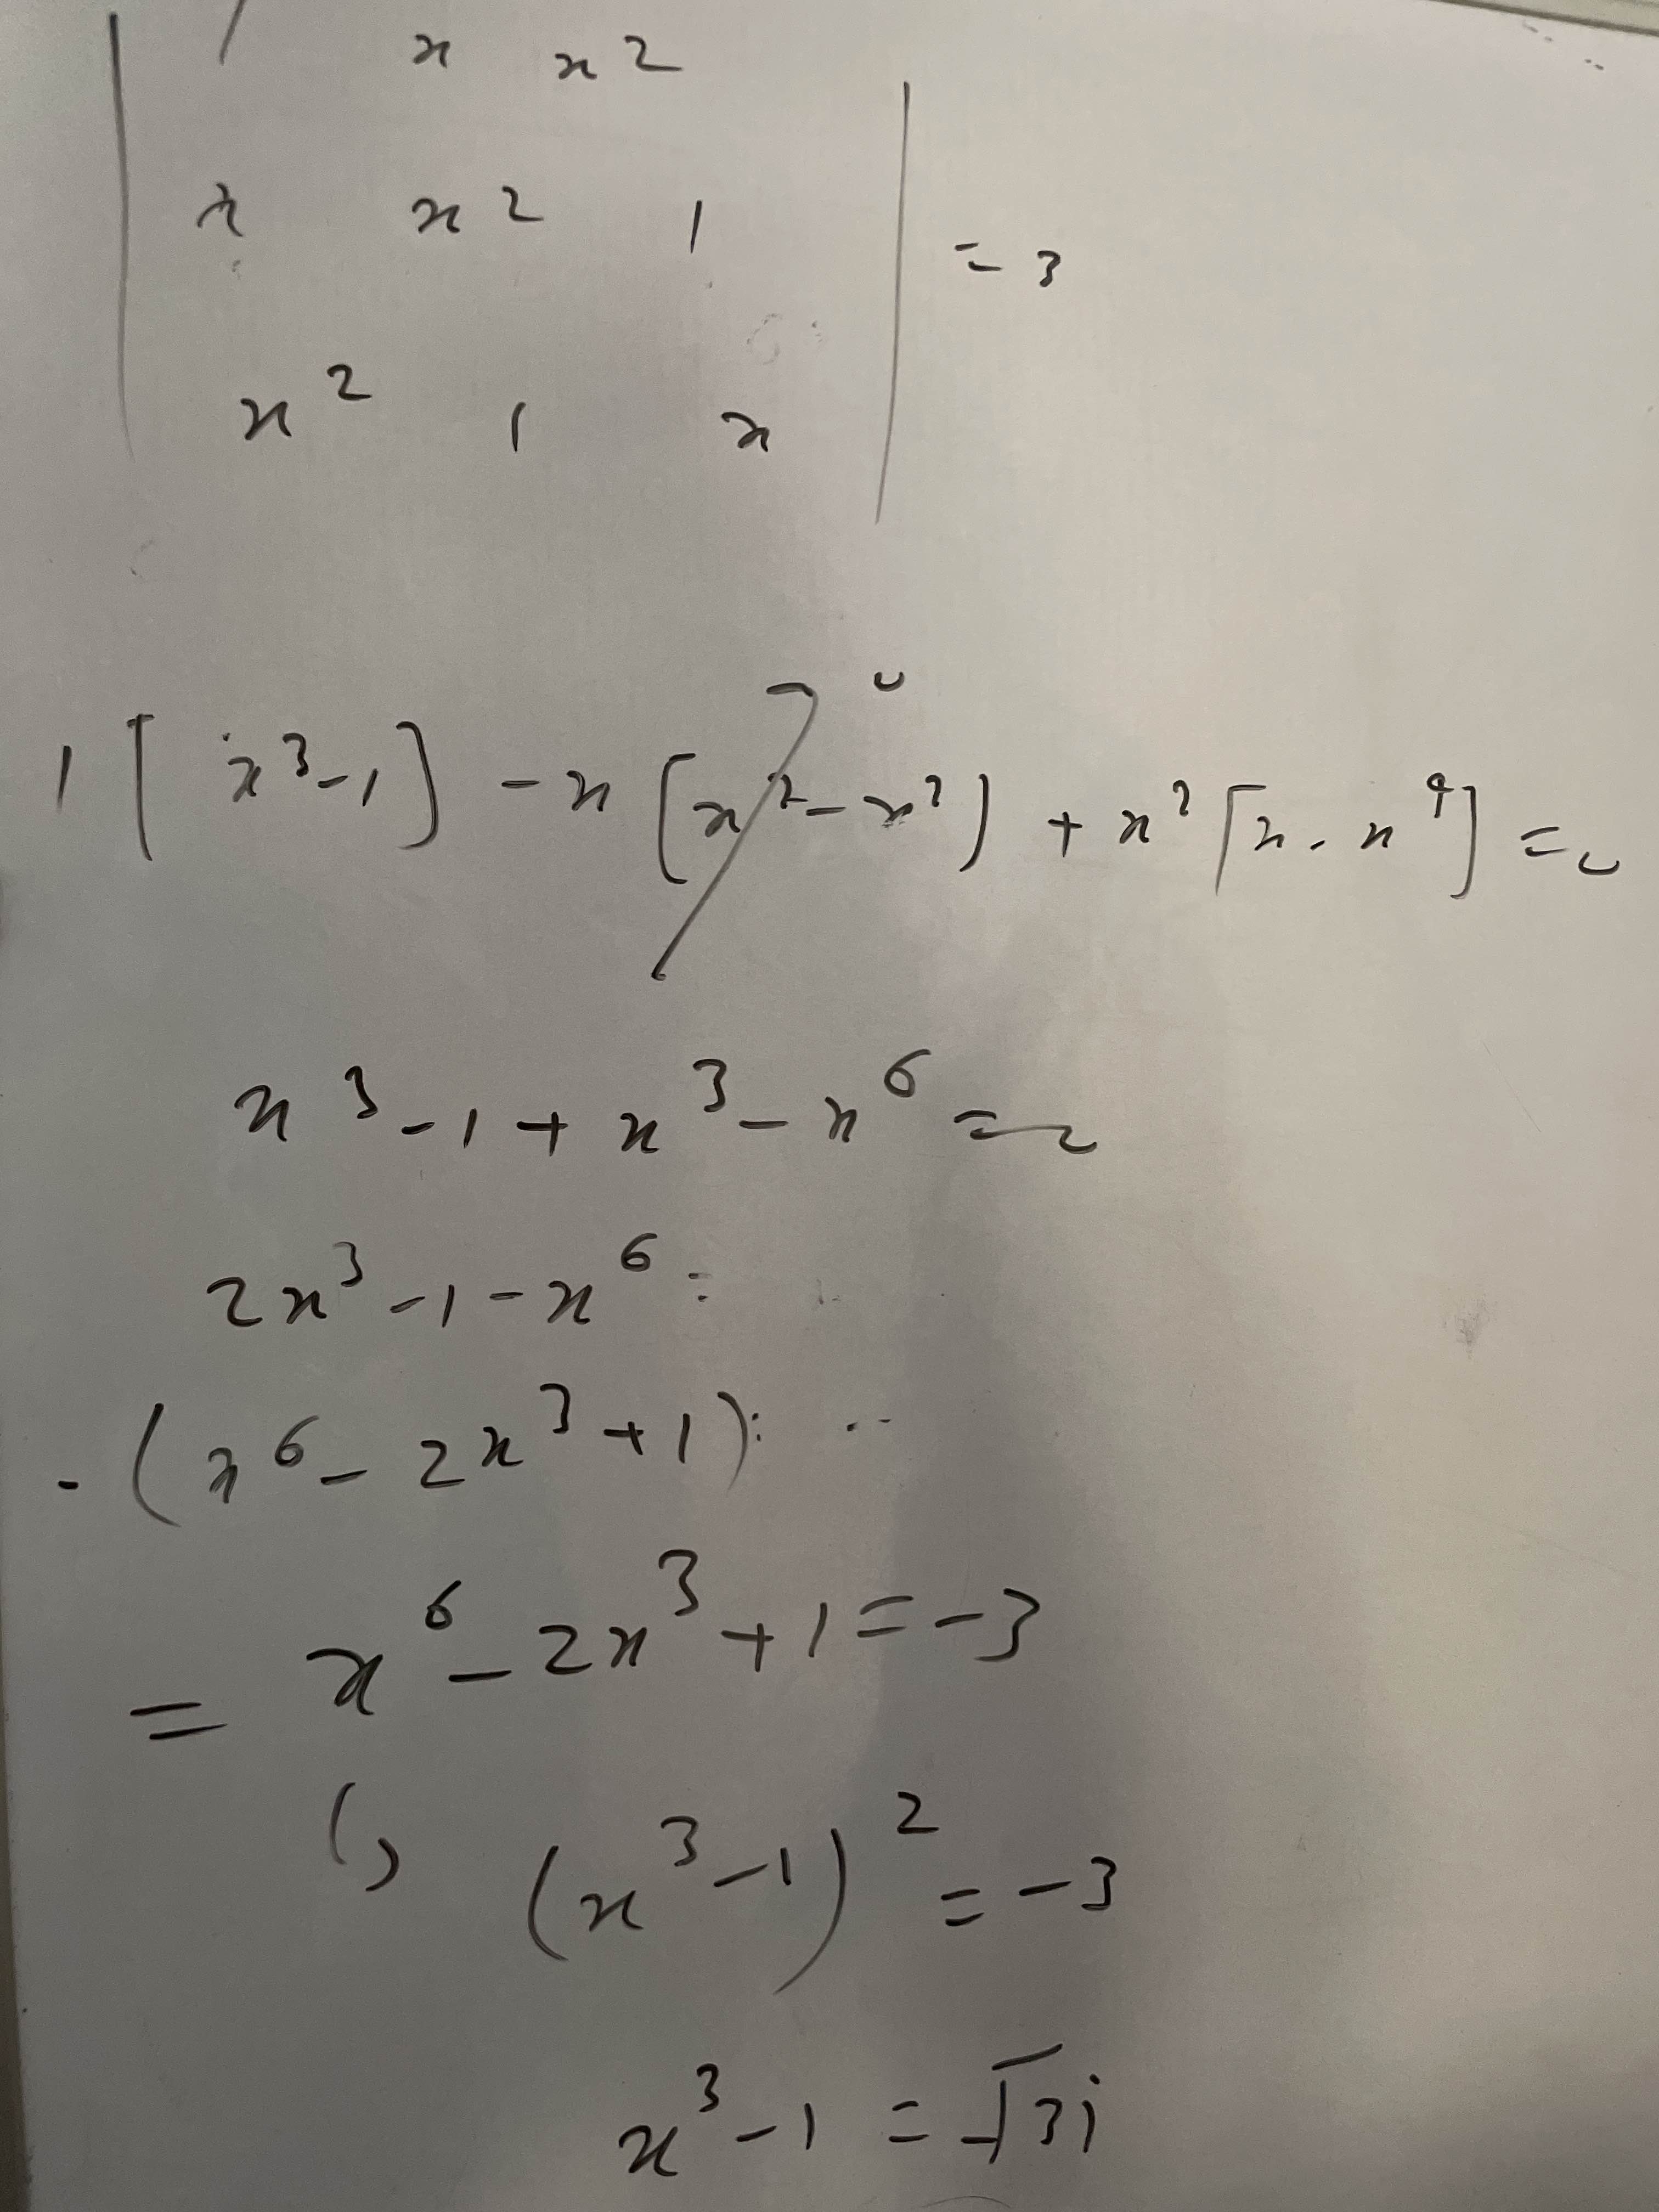 | 1 x x² |
| x x² 1 | = 3
| x² 1 x |
1 [x³-1] - x [x²-x²) + x² [x - x⁴] = 0
x³ - 1 + x³ - x⁶ =
2x³ - 1 - x⁶ =
- (x⁶ - 2x³ + 1) :
= x⁶ - 2x³ + 1 = -3
(x³ - 1)² = -3
x³ - 1 = √3i